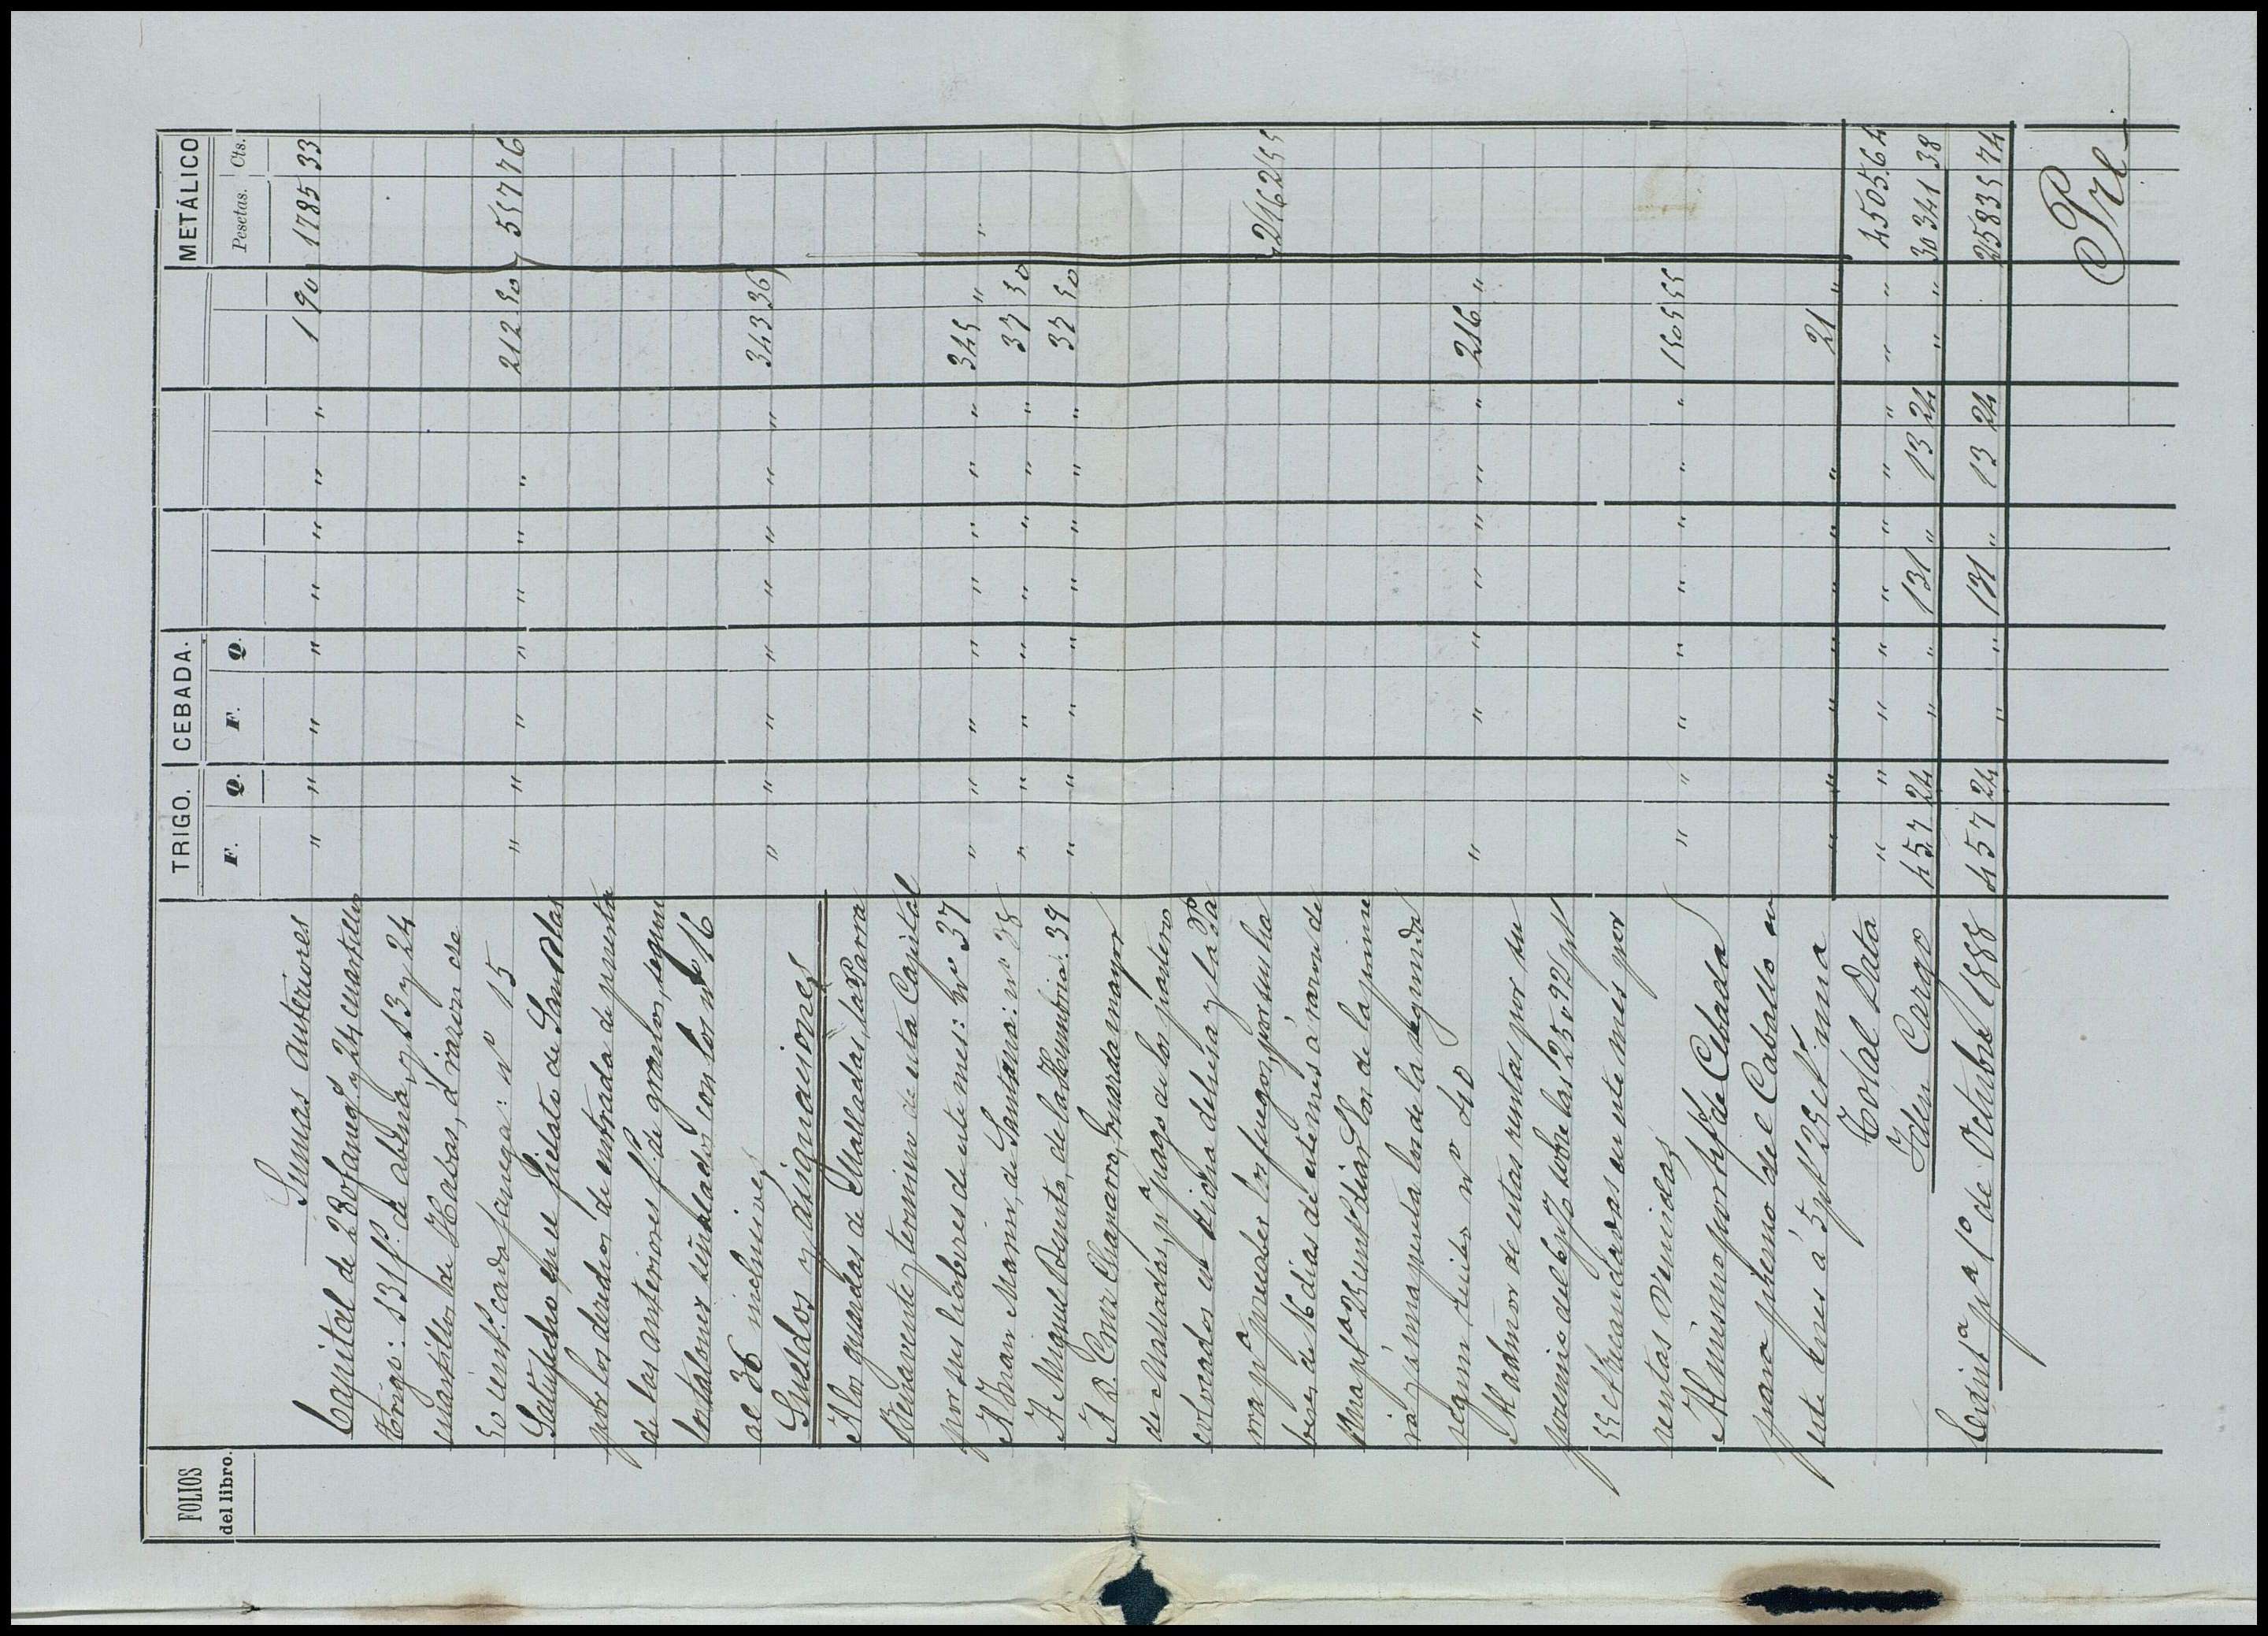 FOLIOS del libro. TRIGO. CEBADA. METÁLICO
F. Q. F. Q. Pesetas. Cts.
Sumas anteriores " " " " " " " " 1 90 1785 33
Capital de 28 fanegs y 24 cuartillos
trigo: 131 f. de abena, y 13 y 24
cuartillos de Habas, á razon de
50 cent. cada fanega: nº 15 " " " " " " " 212 50 557 76
Satisfecho en el fielato de
por los derechos de entrada de puerta
de las anteriores f. de granos, segun
los talones señalados con los nº 16
al 36 inclusives " " " " " " " " 343 36
Sueldos y asignaciones
A los guardas de Malladas, la Parra
Benavente y termino de esta Capital
por sus haberes de este mes: nº 37 " " " " " " " " 345 " "
A Juan Marin, de Santana: nº 38 " " " " " " " " 37 50
A Miguel Benito, de la : 39 " " " " " " " " 37 50
A B. Cruz Chaparro, Guarda mayor
de Malladas, pª pago de los
colocados en dicha dehesa y la Pa
rra pª los fuegos, por sus ha
beres de 16 dias de este mes á razon de
de la prime
ra, y á la segunda
segun nº 40 " " " " " " " " 216 " 2162 55
Al admor de estas rentas por su
premio del 6 p% sobre las
en este mes por
rentas vencidas " " " " " " " " 1505 55
Al mismo por de Cebada
para pienso del Caballo en
este mes á " " " " " " " 21 "
Total Data " " " " " " " " " " 4505 64
Idem Cargo 457 24 " " 131 " 13 24 " " 30341 38
Existª pª 1º de Octubre 1888 457 24 " " 131 " 13 24 25835 74